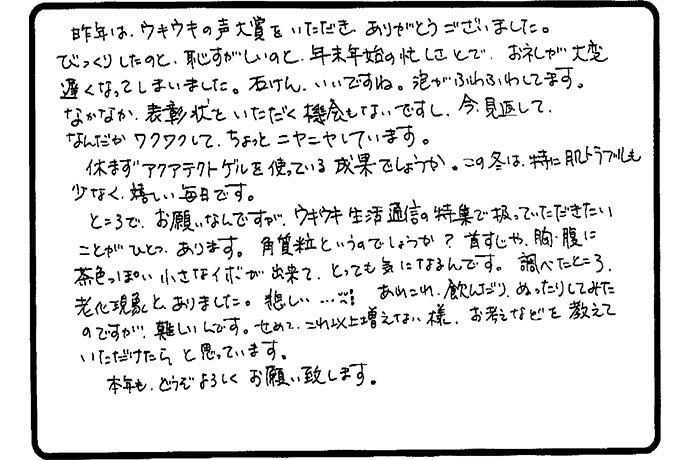 昨年は、ウキウキの声大賞をいただき、ありがとうございました。
びっくりしたのと、恥ずかしいのと、年末年始の忙しさとで、お礼が大変
遅くなってしまいました。石けん、いいですね。泡がふわふわしてます。
なかなか、表彰状をいただく機会もないですし、今、見返して、
なんだかワクワクして、ちょっとニヤニヤしています。
休まずアクアテクトゲルを使っている成果でしょうか。この冬は、特に肌トラブルも
少なく、嬉しい毎日です。
ところで、お願いなんですが、ウキウキ生活通信の特集で扱っていただきたい
ことがひとつ、あります。角質粒というのでしょうか？首すじや、胸・腹に
茶色っぽい小さなイボが出来て、とっても気になるんです。調べたところ、
老化現象と、ありました。悲しい…
あれこれ、飲んだり、ぬったりしてみた
のですが、難しいんです。せめて、これ以上増えない様、お考えなどを教えて
いただけたら、と思っています。
本年も、どうぞよろしくお願い致します。